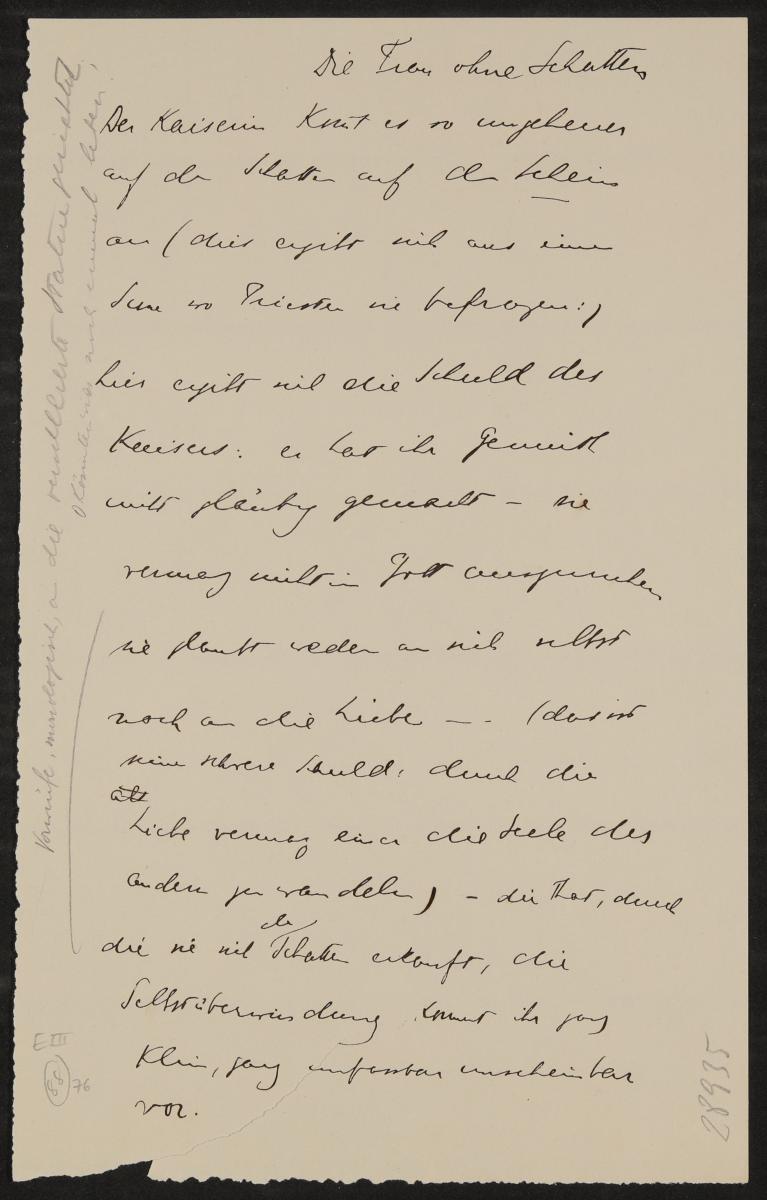 Die Frau ohne Schatten
Der Kaiserin kommt es so ungeheuer
auf den Schatten auf den Schein
an (dies ergibt sich aus einer
Scene wo Priester sie befragen:)
hier ergibt sich die Schuld des
Kaisers: er hat ihr Gemüth
nicht gläubig gemacht – sie
vermag nicht in Gott
sie glaubt weder an sich selbst
noch an die Liebe – . (das ist
seine schwere Schuld: durch die
alt
Liebe vermag einer die Seele des
andern zu wandeln) – die That, durch
die sie sich den Schatten erkauft, die
Selbstüberwindung kommt ihr ganz
klein, ganz unfassbar unscheinbar
vor.
Vorwürfe, monologisch, an die versteinerte Statue gerichtet
O könnte er noch einmal leben!
E III
88
76
28935